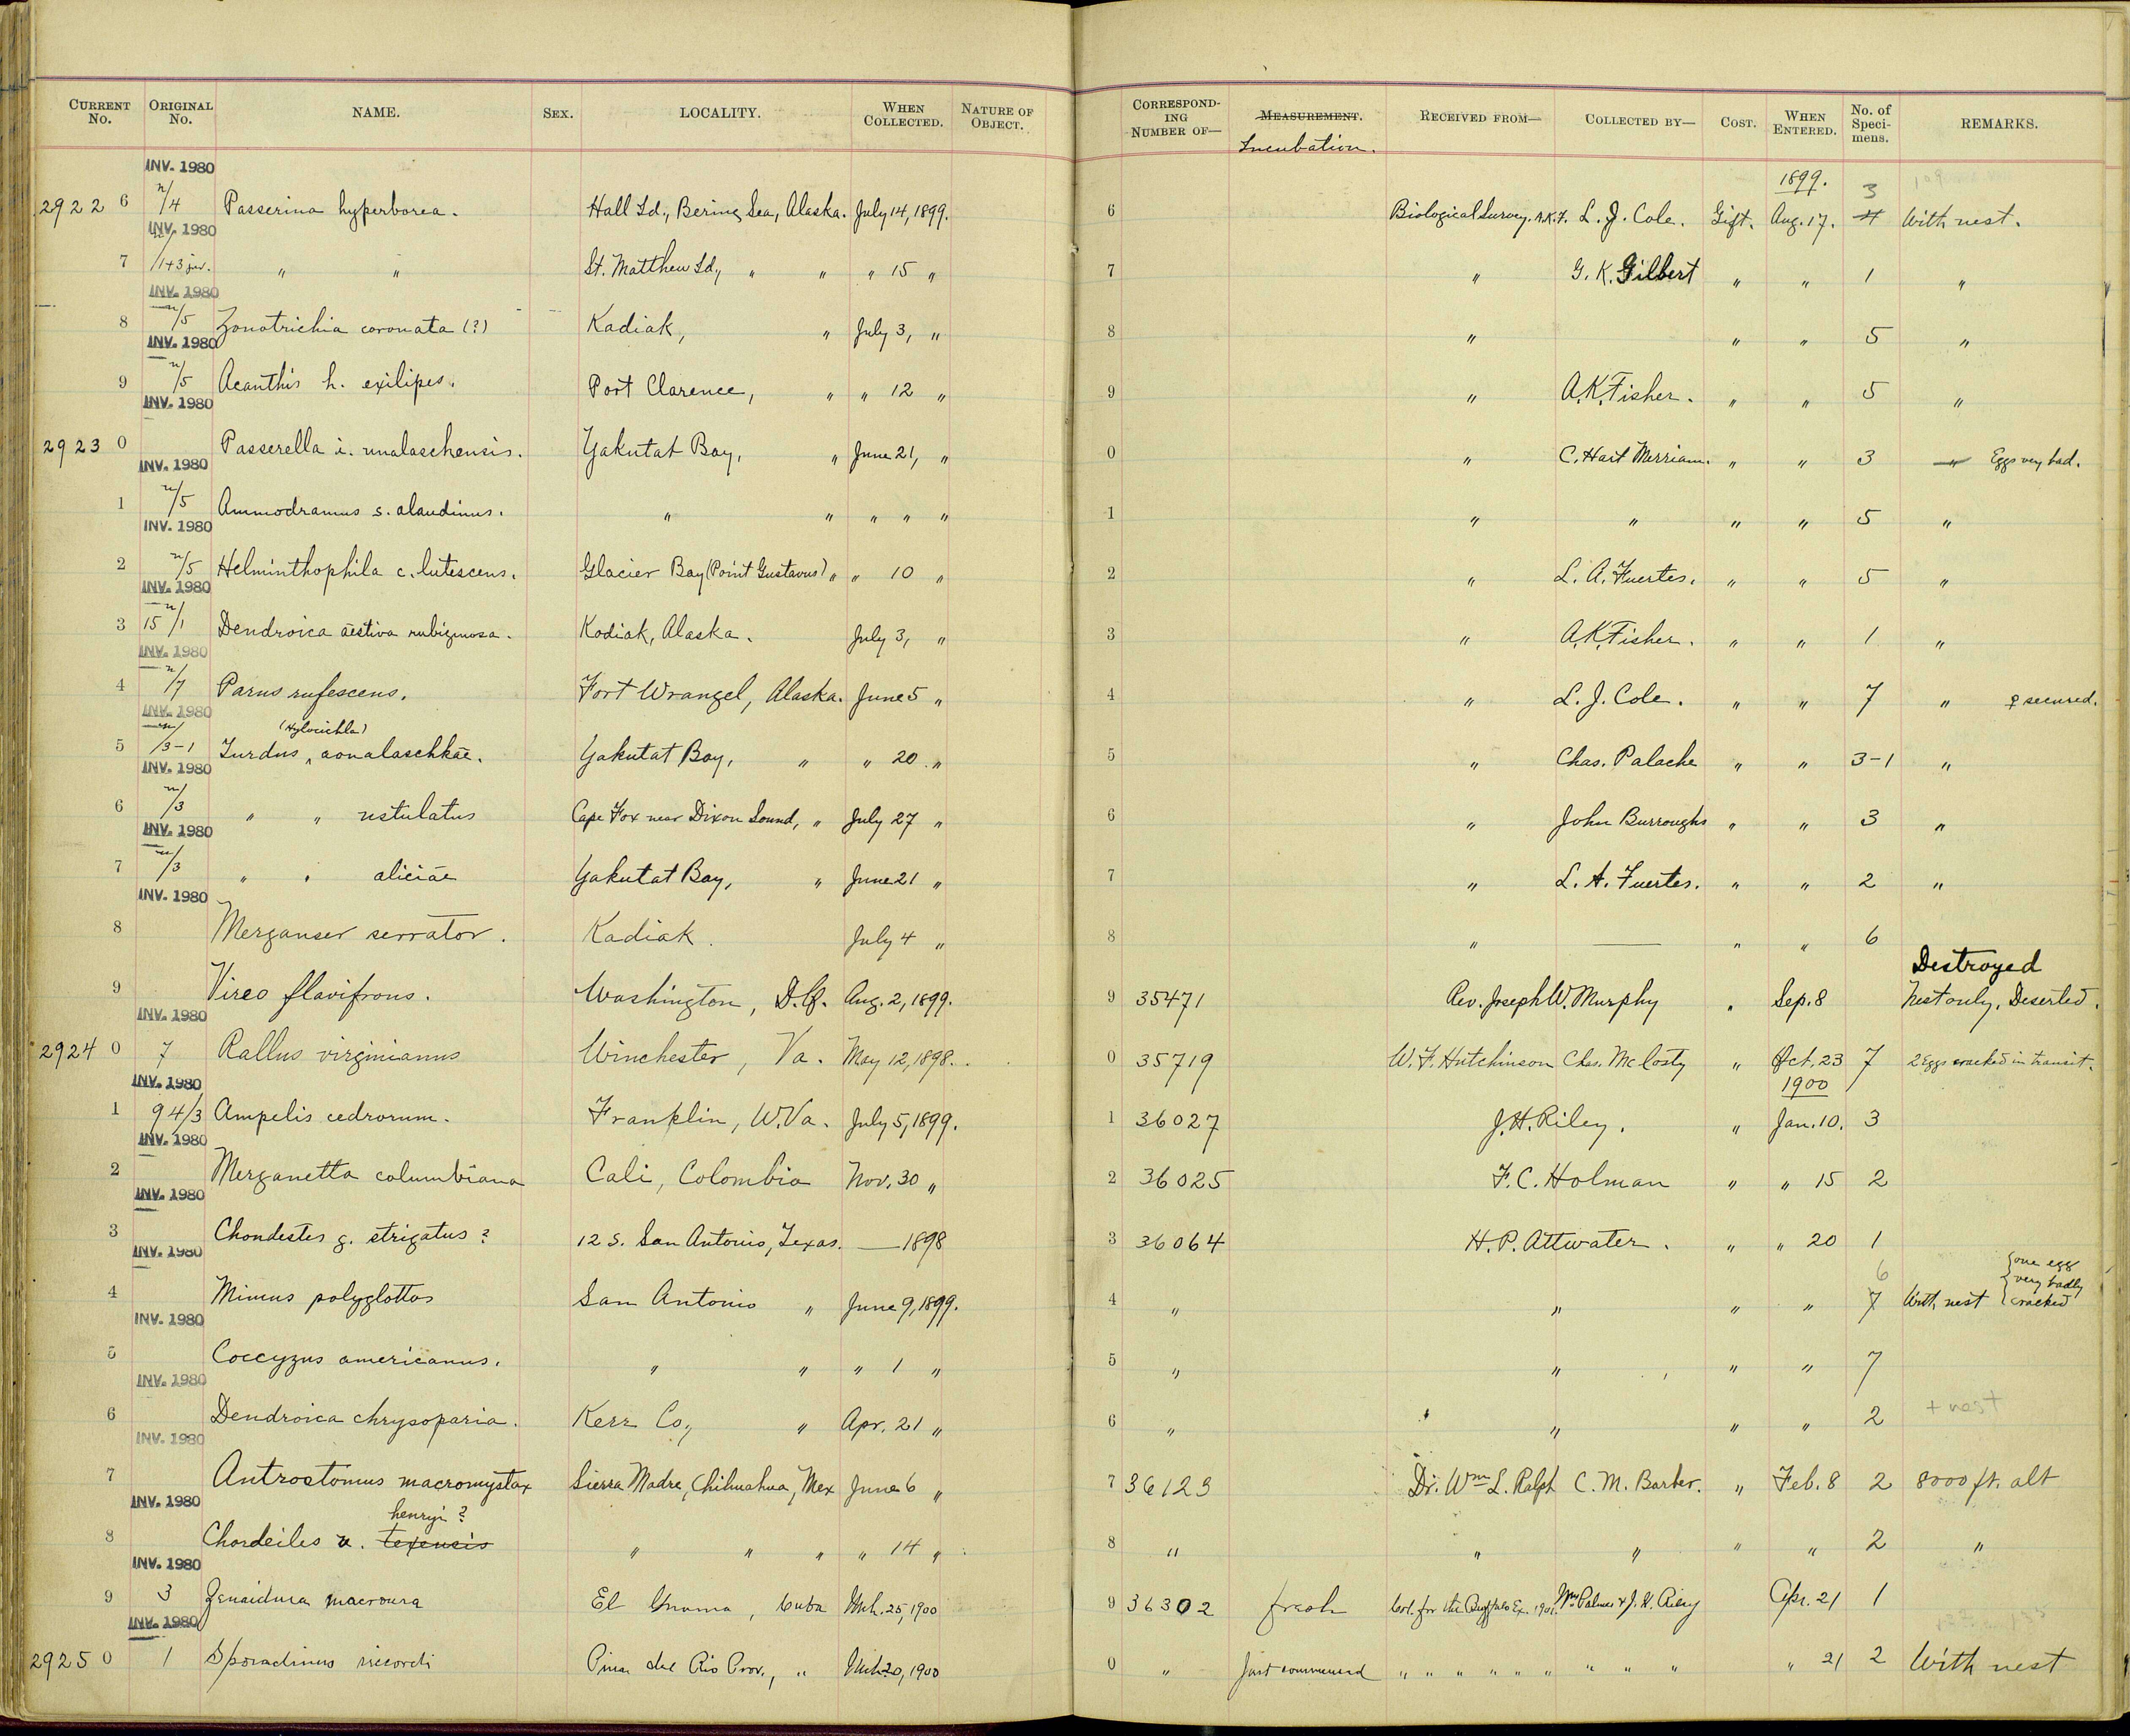 CURRENT No. ORIGINAL No. NAME. SEX. LOCALITY. WHEN COLLECTED. NATURE OF OBJECT. CORRESPONDING NUMBER OF— MEASUREMENT. Incubation. RECEIVED FROM— COLLECTED BY— COST. WHEN ENTERED. No. of Specimens. REMARKS.
INV. 1980
1899.
29226 n/4 Passerina hyperborea. Hall Id., Bering Sea, Alaska. July 14, 1899. 6 Biological Survey. A.K.F. L. J. Cole. Gift. Aug. 17. 3 4 With nest.
INV. 1980
7 /1+3 juv. " " St. Matthew Id., " " " 15 " 7 " G. K. Gilbert " " 1 "
INV. 1980
8 n/5 Zonotrichia coronata (?) Kadiak, " July 3, " 8 " " " 5 "
INV. 1980
9 n/5 Acanthis h. exilipes. Port Clarence, " " 12 " 9 " A.K. Fisher. " " 5 "
INV. 1980
29230 Passerella i. unalaschensis. Yakutat Bay, " June 21, " 0 " C. Hart Merriam. " " 3 " Eggs very bad.
INV. 1980
1 n/5 Ammodramus s. alaudinus. " " " " " 1 " " " " 5 "
INV. 1980
2 n/5 Helminthophila c. lutescens. Glacier Bay (Point Gustavus) " " 10 " 2 " L. A. Fuertes. " " 5 "
INV. 1980
3 15 n/1 Dendroica aestiva rubiginosa. Kodiak, Alaska. July 3, " 3 " A.K. Fisher. " " 1 "
INV. 1980
4 n/7 Parus rufescens. Fort Wrangel, Alaska. June 5 " 4 " L. J. Cole. " " 7 " ♀ secured.
INV. 1980
(Hylocichla)
5 n/3-1 Turdus, aonalaschkae. Yakutat Bay, " " 20 " 5 " Chas. Palache " " 3-1 "
INV. 1980
6 n/3 " " ustulatus Cape Fox near Dixon Sound, " July 27 " 6 " John Burroughs " " 3 "
INV. 1980
7 n/3 " " aliciae Yakutat Bay, " June 21 " 7 " L. A. Fuertes. " " 2 "
INV. 1980
8 Merganser serrator. Kadiak. July 4 " 8 " — " " 6
Destroyed
9 Vireo flavifrons. Washington, D.C. Aug. 2, 1899. 9 35471 Rev. Joseph W. Murphy " Sep. 8 Nest only. Deserted.
INV. 1980
29240 7 Rallus virginianus Winchester, Va. May 12, 1898. 0 35719 W. F. Hutchinson Chas. McCosty " Oct. 23 7 2 Eggs cracked in transit.
INV. 1980
1900
1 94/3 Ampelis cedrorum. Franklin, W.Va. July 5, 1899. 1 36027 J. H. Riley. " Jan. 10. 3
INV. 1980
2 Merganetta columbiana Cali, Colombia Nov. 30 " 2 36025 F. C. Holman " " 15 2
INV. 1980
3 Chondestes g. strigatus ? 12 S. San Antonio, Texas. —1898 3 36064 H. P. Attwater. " " 20 1
INV. 1980
4 Mimus polyglottos San Antonio " June 9, 1899. 4 " " " " 6 7 With nest {one egg very badly cracked
INV. 1980
5 Coccyzus americanus. " " " 1 " 5 " " " " 7
INV. 1980
6 Dendroica chrysoparia. Kerr Co., " Apr. 21 " 6 " " " " 2 + nest
INV. 1980
7 Antrostomus macromystax Sierra Madre, Chihuahua, Mex June 6 " 7 36123 Dr. Wm L. Ralph C. M. Barber. " Feb. 8 2 8000 ft. alt
INV. 1980
henryi ?
8 Chordeiles v. texensis " " " " 14 " 8 " " " " " 2 "
INV. 1980
9 3 Zenaidura macroura El Guama, Cuba Mch. 25, 1900 9 36302 fresh Col. for the Buffalo Ex. 1901. Wm Palmer & J. H. Riley Apr. 21 1
INV. 1980
29250 1 Sporadinus riccordi Pinar del Rio Prov., " Mch 20, 1900 0 " Just commenced " " " " " " " " " " 21 2 With nest